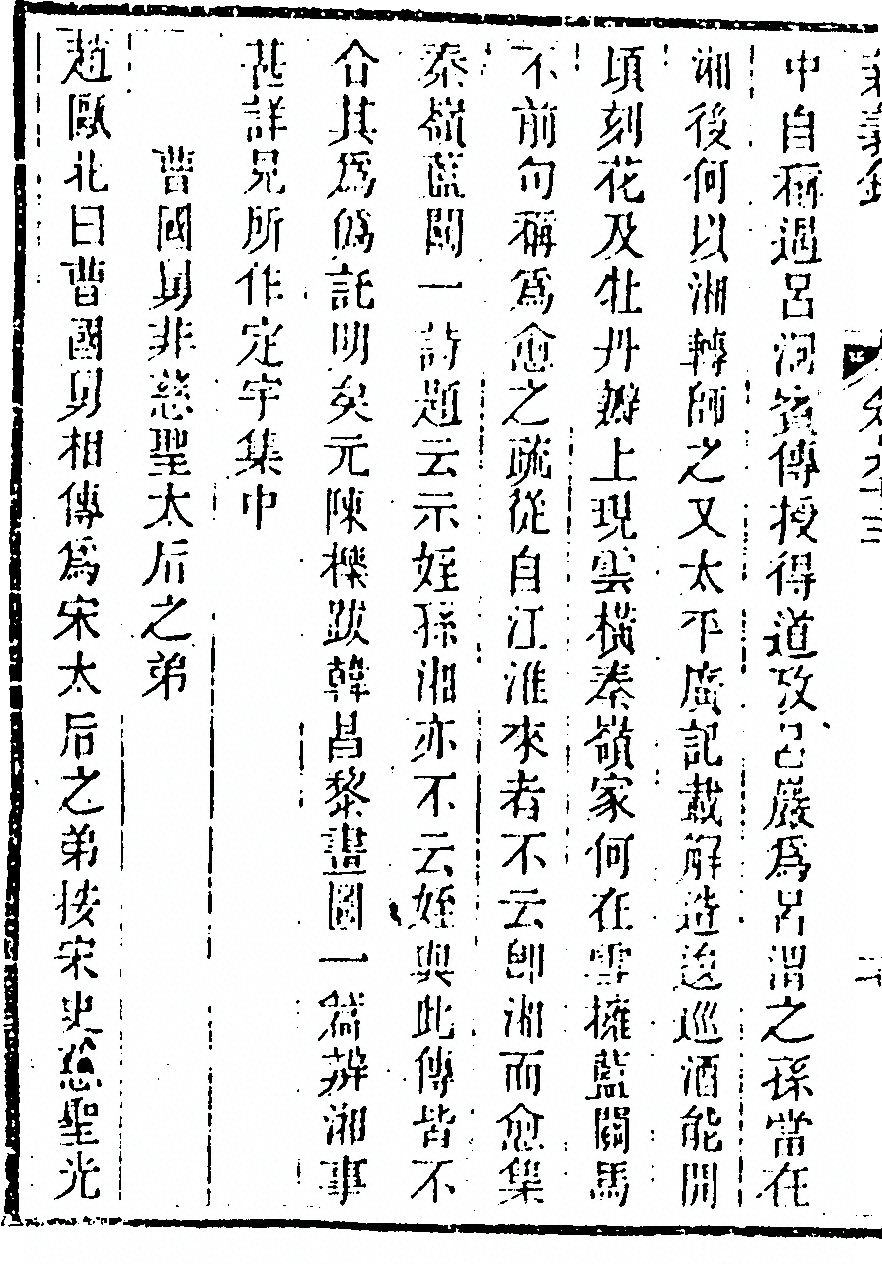 中自稱遇呂洞賓傳授得道攷呂巖爲呂渭之孫當在
湘後何以湘轉師之又太平廣記載解造逡巡酒能開
頃刻花及牡丹瓣上現雲橫秦嶺家何在雪擁藍關馬
不前句稱爲愈之疏從自江淮來者不云卽湘而愈集
秦嶺藍關一詩題云示姪孫湘亦不云姪與此傳皆不
合其爲僞託明矣元陳櫟跋韓昌黎畫圖一篇辨湘事
甚詳見所作定宇集中
曹國舅非慈聖太后之弟
趙甌北曰曹國舅相傳爲宋太后之弟按宋史慈聖光